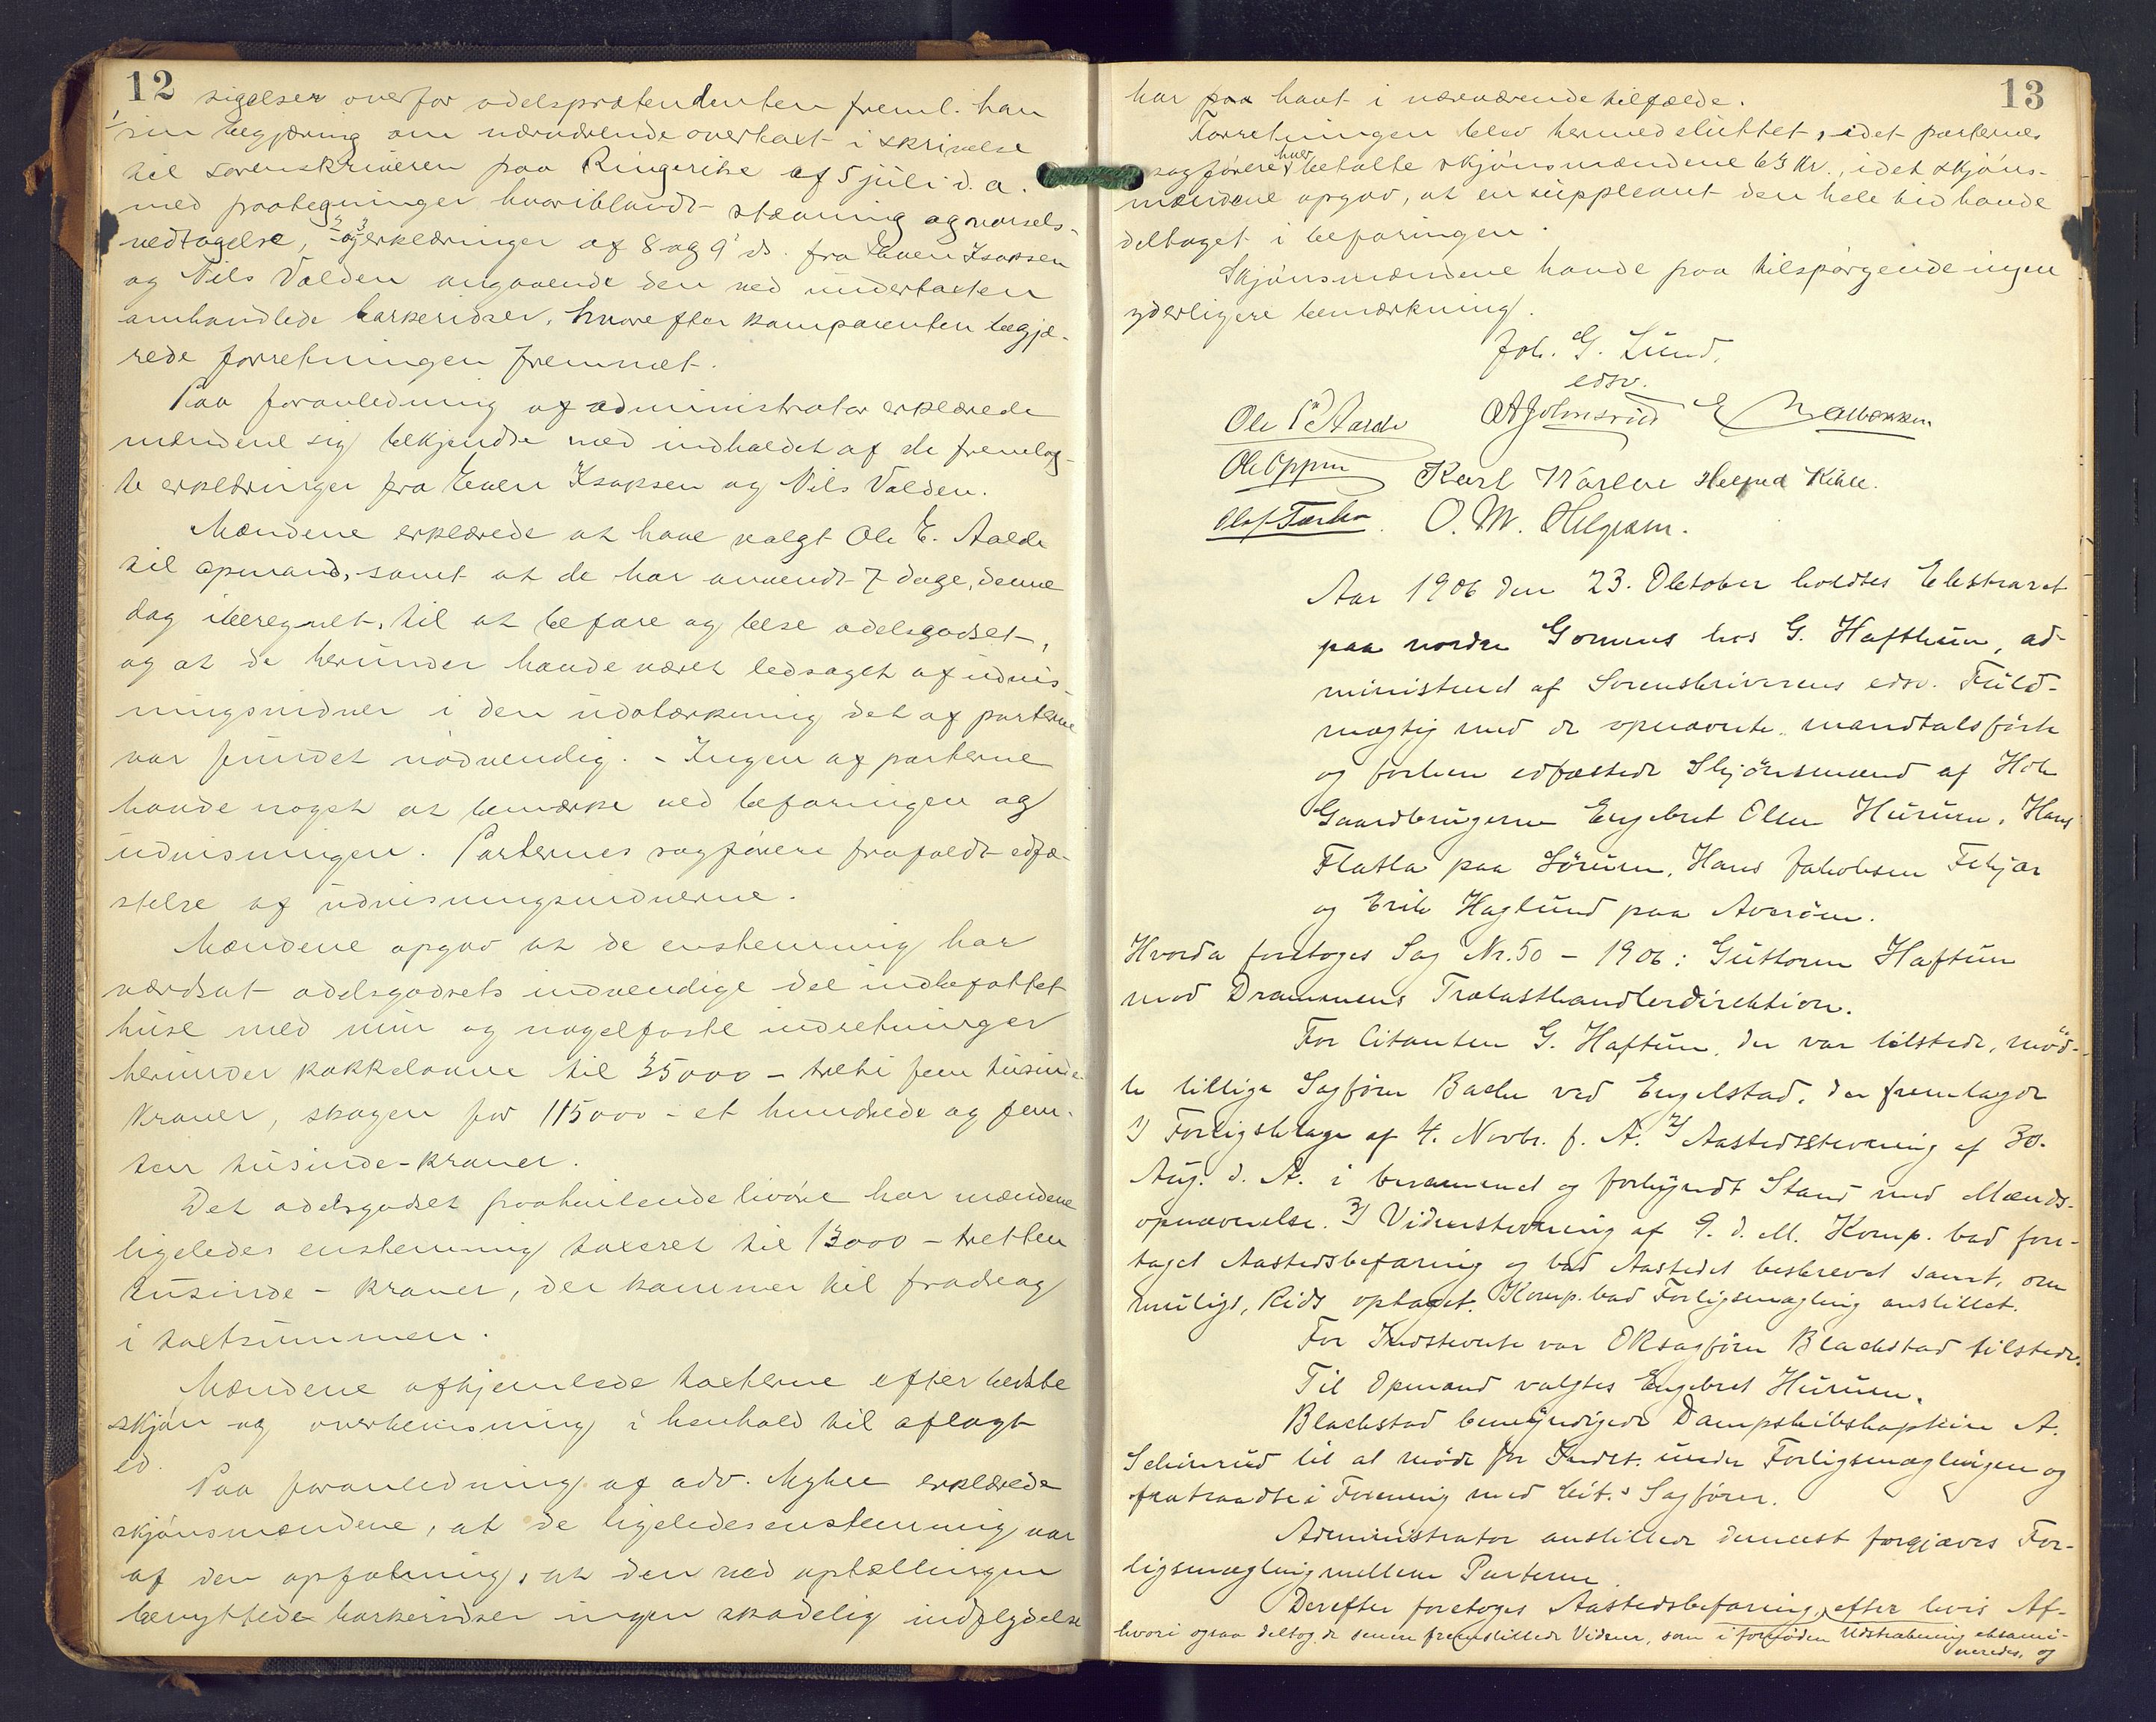 12
sigelser overfor odelsprætendenten freml. han
1/ sin begjæring om nærværende overtaxt i skrivelse
til sorenskriveren paa Ringerike af 5 juli d. a.
med paategninger hvoriblandt stævning og varsels-
vedtagelse, 2 og 3 erklæringer af 8 og 9' ds. fra Even Isaksen
og Nils Valden angaaende den ved undertaxten
omhandlede barkeridser, hvorefter komparenten begjæ-
rede forretningen fremmet.
Paa foranledning af administrator erklærede
mændene sig bekjendte med indholdet af de fremlag-
te erklæringer fra Even Isaksen og Nils Valden.
Mændene erklærede at have valgt Ole E. Aalde
til opmand, samt at de har anvendt 7 dage, denne
dag iberegnet, til at befare og bese odelsgodset,
og at de herunder havde været ledsaget af udvis-
ningsvidner i den udstrækning det af parterne
var fundet nødvendig. - Ingen af parterne
havde noget at bemærke ved befaringen og
udvisningen. Parternes sagførere frafaldt edfæ-
stelse af udvisningsvidnerne.
Mændene opgav at de enstemmig har
værdsat odelsgodsets indvendige del indbefattet
huse med mur og nagelfaste indretninger
herunder kakkelovne til 35000 - tretti fem tusinde
kroner, skogen for 115000 - et hundrede og fem-
ten tusinde - kroner.
Det odelsgodset paahvilende livøre har mændene
ligeledes enstemmig taxeret til 13000 - tretten
tusinde - kroner, der kommer til fradrag
i taxtsummen.
Mændene afhjemlede taxterne efter bedste
skjøn og overbevisning i henhold til aflagt
ed.
Paa foranledning af adv. Myhre erklærede
skjønsmændene, at de ligeledes enstemmig var
af den opfatning, at den ved optællingen
benyttede barkeridser ingen skadelig indflydelse
13
har paa havt i nærværende tilfælde.
Forretningen blev hermed sluttet, idet parternes
sagførere hver betalte skjønsmændene 63 Kr., idet skjøns-
mændene opgav, at en suppleant den hele tid havde
deltaget i befaringen.
Skjønsmændene havde paa tilspørgende ingen
yderligere bemærkning.
Joh. G. Lund,
edsv.
Ole E Aarde AJolmsrud
Ole Oppen Karl Warloe Helged Kihle.
Olaf Færden. O. M. Helgesen.
Aar 1906 den 23. Oktober holdtes Ekstraret
paa nordre Gommes hos G. Hafthun, ad-
ministreret af Sorenskriverens edsv. Fuld-
mægtig med de opnævnte mandtalsførte
og forhen edfæstede Skjønsmænd af Hole
Gaardbrugerne Engebret Olsen Hurum, Hans
Flatla paa Sørum, Hans Jakobsen Fekjær
og Erik Haglund paa Averøen.
Hvorda foretoges Sag Nr. 50 - 1906: Guttorm Haftun
mod Drammens Trælasthandlerdirektion.
For Citanten G. Haftun, der var tilstede, mød-
te tillige Sagfører Bache ved Engelstad, der fremlagde
1) Forligsklage af 4. Novbr. f. A. 2) Aastedsstevning af 30.
Aug. d. A. i berammet og forkyndt Stand med Mænds-
opnævnelse. 3) Vidnestevning af 9. d. M. Komp. bad fore-
taget Aastedsbefaring og bad Aastedet beskrevet samt, om
muligt, Rids optaget. Komp. bad Forligsmægling anstillet.
For Indstevnte var ORsagfører Blackstad tilstede.
Til Opmand valgtes Engebret Hurum.
Blackstad bemyndigede Dampskibskaptein A.
Schinrud til at møde for Indst. under Forligsmæglingen og
fratraadte i Forening med Cit.s Sagfører.
Administrator anstillede dernæst forgjæves For-
ligsmægling mellem Parterne.
Derefter foretoges Aastedsbefaring, efter hvis Af-
hvori ogsaa deltog de senere fremstillede Vidner, som i fornøden Udstrækning eksami-
neredes, og